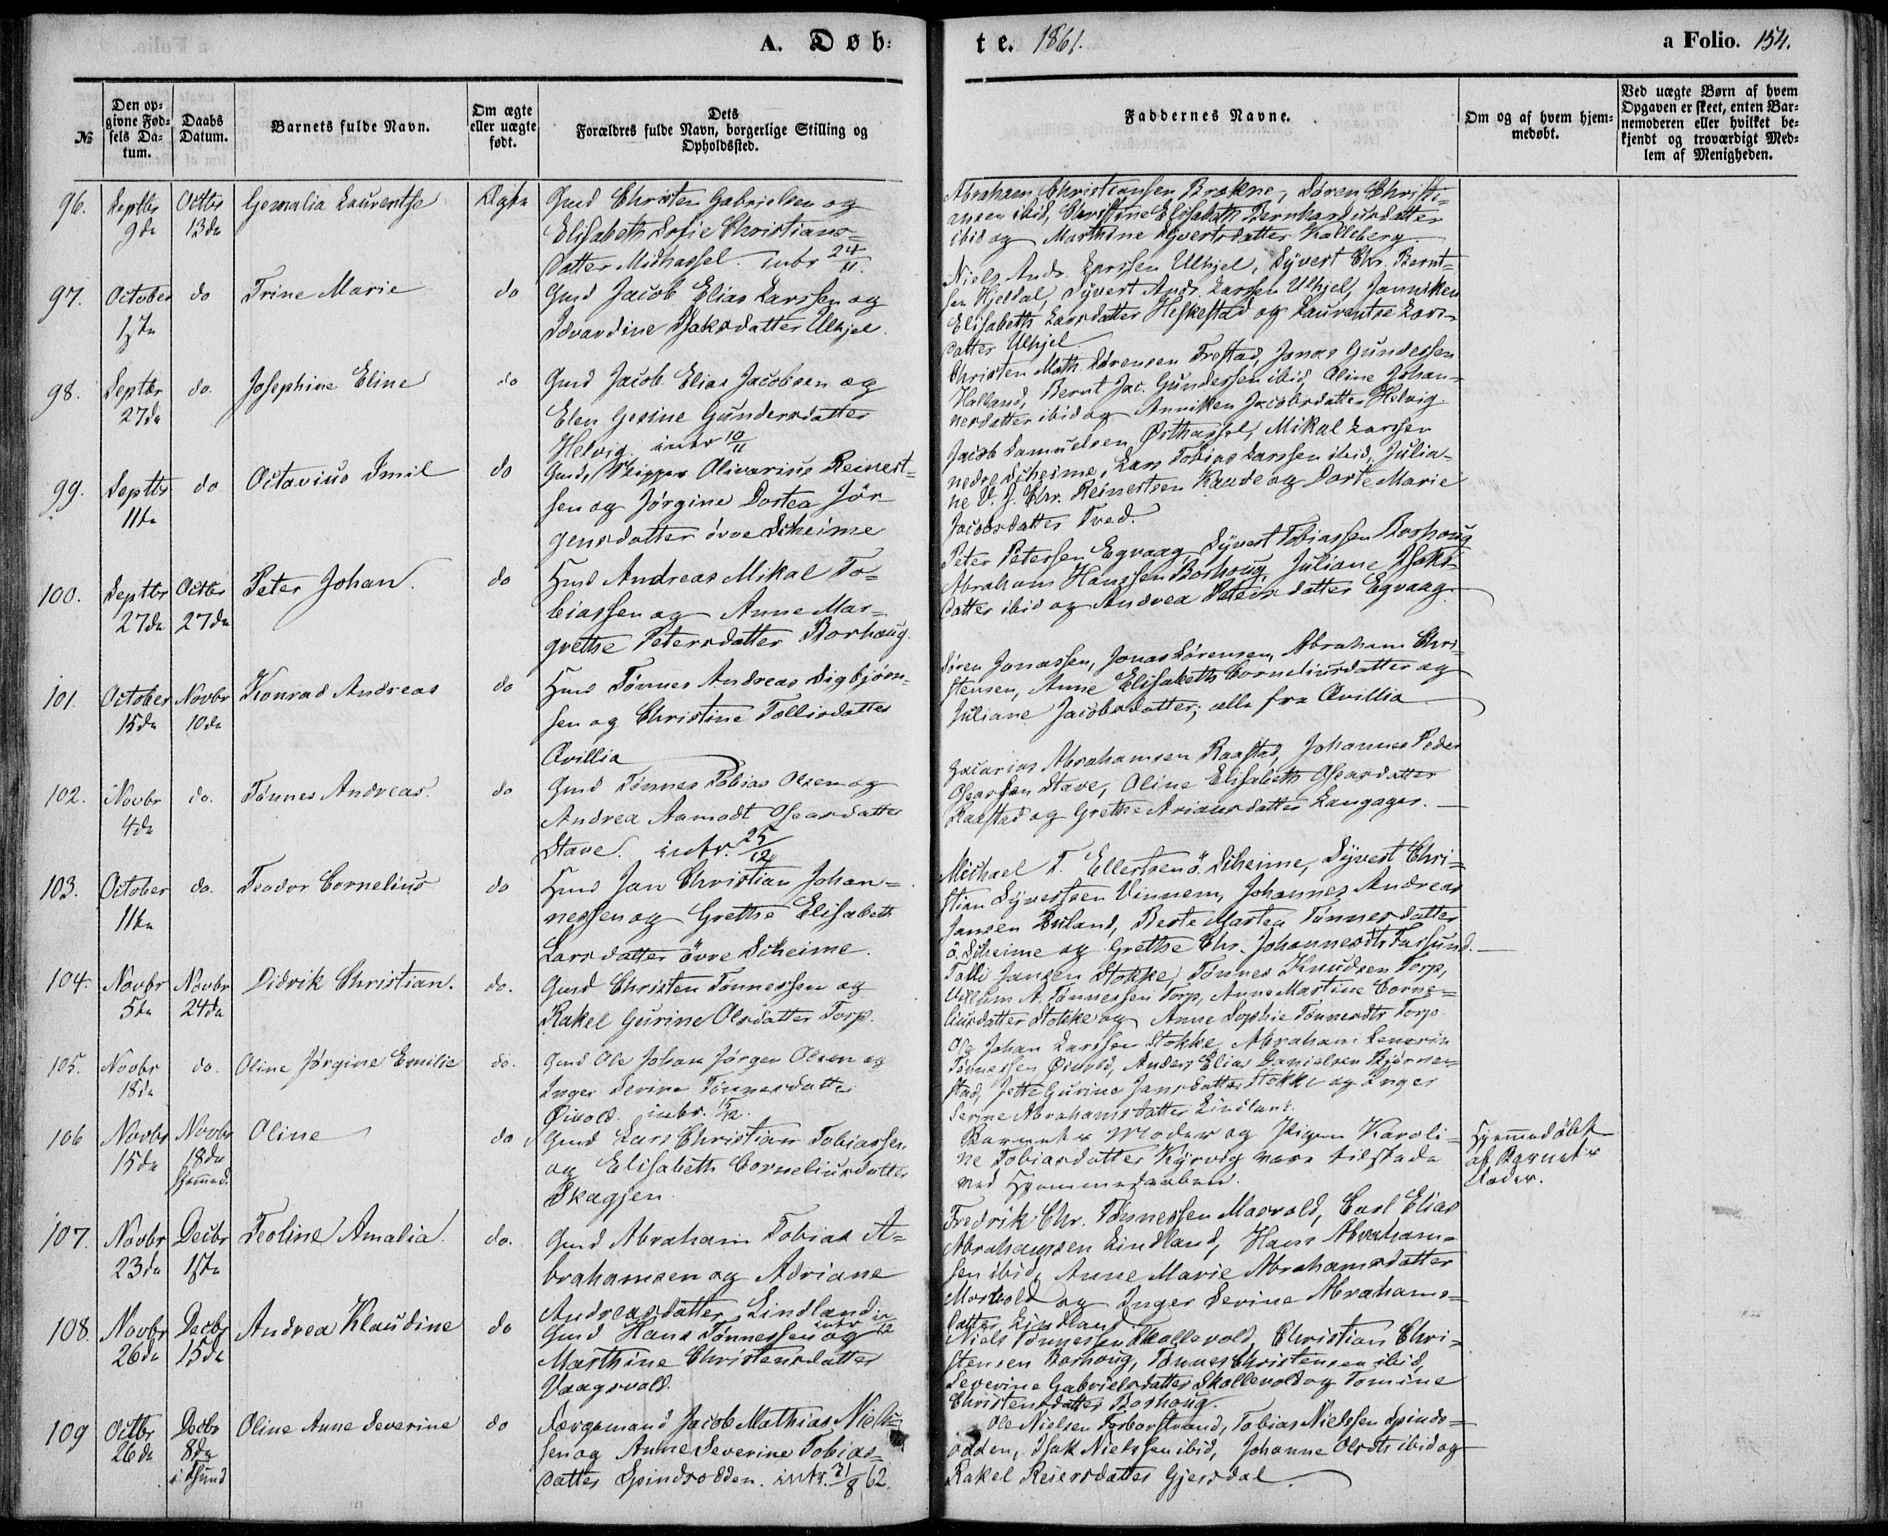 A. Døb:
te. 1861.
a Folio. 154.
№
Den op-
givne Fød-
sels Da-
tum.
Daabs
Datum.
Barnets fulde Navn.
Om ægte
eller uægte
født.
Dets
Forældres fulde Navn, borgerlige Stilling og
Opholdssted.
Faddernes Navne.
Om og af hvem hjem-
medøbt.
Ved uægte Børn af hvem
Opgaven er skeet, enten Bar-
nemoderen eller hvilket be-
kjendt og troværdigt Med-
lem af Menigheden.
96.
Septbr
9de
Octbr
13de
Gemalia Laurentse
Ægte
Gmd Christen Gabrielsen og
Elisabeth Sofie Christians-
datter Midhassel. intr 24/11.
Abraham Christiansen Brekne, Søren Christi-
ansen ibid, Christine Elisabeth Bernhardusdatter
ibid og Marthine Syvertsdatter Kalleberg.
97.
October
17de
do
Trine Marie
do
Gmd Jacob Elias Larssen og
Edvardine Isaksdatter Ulhjel.
Niels Ands. Larssen Ulhjel, Syvert Chr. Bernt-
sen Hjeldal, Syvert Ands. Larssen Ulhjel, Janniken
Elisabeth Larsdatter Heskestad og Laurentse Lars-
datter Ulhjel.
98.
Septbr
27de
do.
Josephine Eline
do
Gmd Jacob Elias Jacobsen og
Elen Gesine Gundersdatter
Helvig. intr 10/11
Christen Math. Sørensen Trestad, Jonas Gundersen
Halland, Bernt Jac. Gundersen ibid, Oline Johan-
nesdatter ibid og Anniken Jacobsdatter Helvig.
99.
Septbr
11te
do
Octavius Emil
do
Gmd, Skipper Olivarius Reinert-
sen og Jørgine Dortea Jør-
gensdatter øvre Skeime
Jacob Samuelsen Østhassel, Mikal Larssen
nedre Skeime, Lars Tobias Larssen ibid, Julia-
ne V. J. Chr. Reinertsen Kaade og Dorte Marie
Jacobsdatter Tved.
100.
Septbr
27de
Octbr
27de
Peter Johan.
do
Hmd Andreas Mikal To-
biassen og Anne Mar-
grethe Petersdatter Borhaug.
Peter Petersen Egvaag, Syvert Tobiassen Borhoug
Abraham Hanssen Borhoug, Juliane Isaks-
datter ibid og Andrea Petersdatter Egvaag.
101.
October
15de
Novbr
10de
Konrad Andreas
do
Hmd Tønnes Andreas Sigbjørn-
sen og Christine Tollisdatter
Qvillia
Søren Jonassen, Jonas Sørensen, Abraham Chri-
stensen, Anne Elisabeth Corneliusdatter og
Juliane Jacobsdatter, alle fra Qvillia
102.
Novbr
4de
do.
Tønnes Andreas.
do
Gmd Tønnes Tobias Olsen og
Andrea Aamodt Osearsdatter
Stave. intr. 25/12
Zacarias Abrahamsen Raastad, Johannes Peder
Osearsen Stave, Oline Elisabeth Osearsdatter
Raastad og Grethe Ariansdatter Langager.
103.
October
11te
do.
Teodor Cornelius
do
Hmd Jan Christian Johan-
nessen og Grethe Elisabeth
Larsdatter øvre Skeime.
Michael T. Ellertsen ö. Skeime, Syvert Chri-
stian Syvertsen Vinnem, Johannes Andreas
Jansen Huland, Berte Martea Tønnesdatter
ö. Skeime og Grethe Chr. Johannesdtr Farsund.
104.
Novbr
5te
Novbr
24de
Didrik Christian.
do.
Gmd Christen Tønnessen og
Rakel Gurine Olsdatter Torp.
Tolli Jansen Stokke, Tønnes Knudsen Torp,
Villum A. Tønnessen Torp, Anne Martine Corne-
liusdatter Stokke og Anne Sophie Tønnesdtr Torp.
105.
Novbr
18de
do.
Oline Jørgine Emilie
do.
Gmd Ole Johan Jørgen Olsen og
Inger Serine Tønnesdatter
Øivold. intr.
Ole Johan Larssen Stokke, Abraham Severin
Tønnessen Øivold, Anders Elias Danielsen Bjørne-
stad, Jette Gurine Jansdatter Stokke og Inger
Serine Abrahamsdatter Lindland.
106
Novbr
15de
Novbr
18de
hjemmed.
Oline
do
Gmd Lars Christian Tobiassen
og Elisabeth Corneliusdatter
Skagjen.
Barnets Moder og Pigen Karoli-
ne Tobiasdatter Kjørvig vare tilstede
ved Hjemmedaaben.
Hjemmedøbt
af Barnets
Fader.
107.
Novbr
23de
Decbr
1ste
Teoline Amalia.
do.
Gmd Abraham Tobias A-
brahamsen og Adriane
Andreasdatter Lindland
intr
Fredrik Chr. Tønnessen Mosvold, Carl Elias
Abrahamsen Lindland, Hans Abraham-
sen ibid, Anne Marie Abrahamsdatter
Mosvold og Inger Serine Abrahams-
datter Lindland.
108.
Novbr
26de
Decbr
15de
Andrea Klaudine
do
Gmd Hans Tønnessen og
Marthine Christensdatter
Vaagsvold.
Niels Tønnessen Skollevold, Christian Chri-
stensen Borhoug, Tønnes Christensen ibid,
Severine Gabrielsdatter Skollevold og Tomine
Christensdatter Borhoug.
109
Octbr
26de
Decbr
8de
i Sund
Oline Anne Severine
do
Færgemand Jacob Mathias Niel-
sen og Anne Severine Tobias-
datter Spindsodden. intr. 31/8 62.
Ole Nielsen Farborstrand, Tobias Nielssen Spinds-
odden, Isak Nielssen ibid, Johanne Olsdtr ibid og
Rakel Reiersdatter Gjersdal.